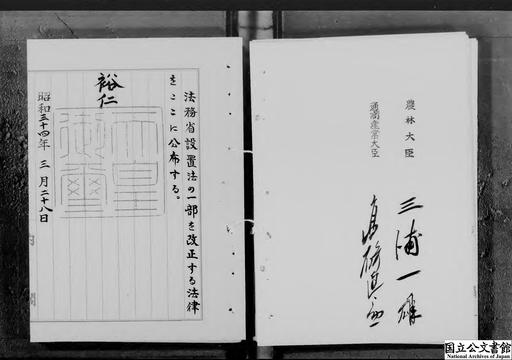 法務省設置法の一部を改正する法律
をここに公布する。
裕仁
天皇御璽
昭和三十四年 三月二十八日
内閣
農林大臣
三浦一雄
通商産業大臣
国立公文書館
National Archives of Japan